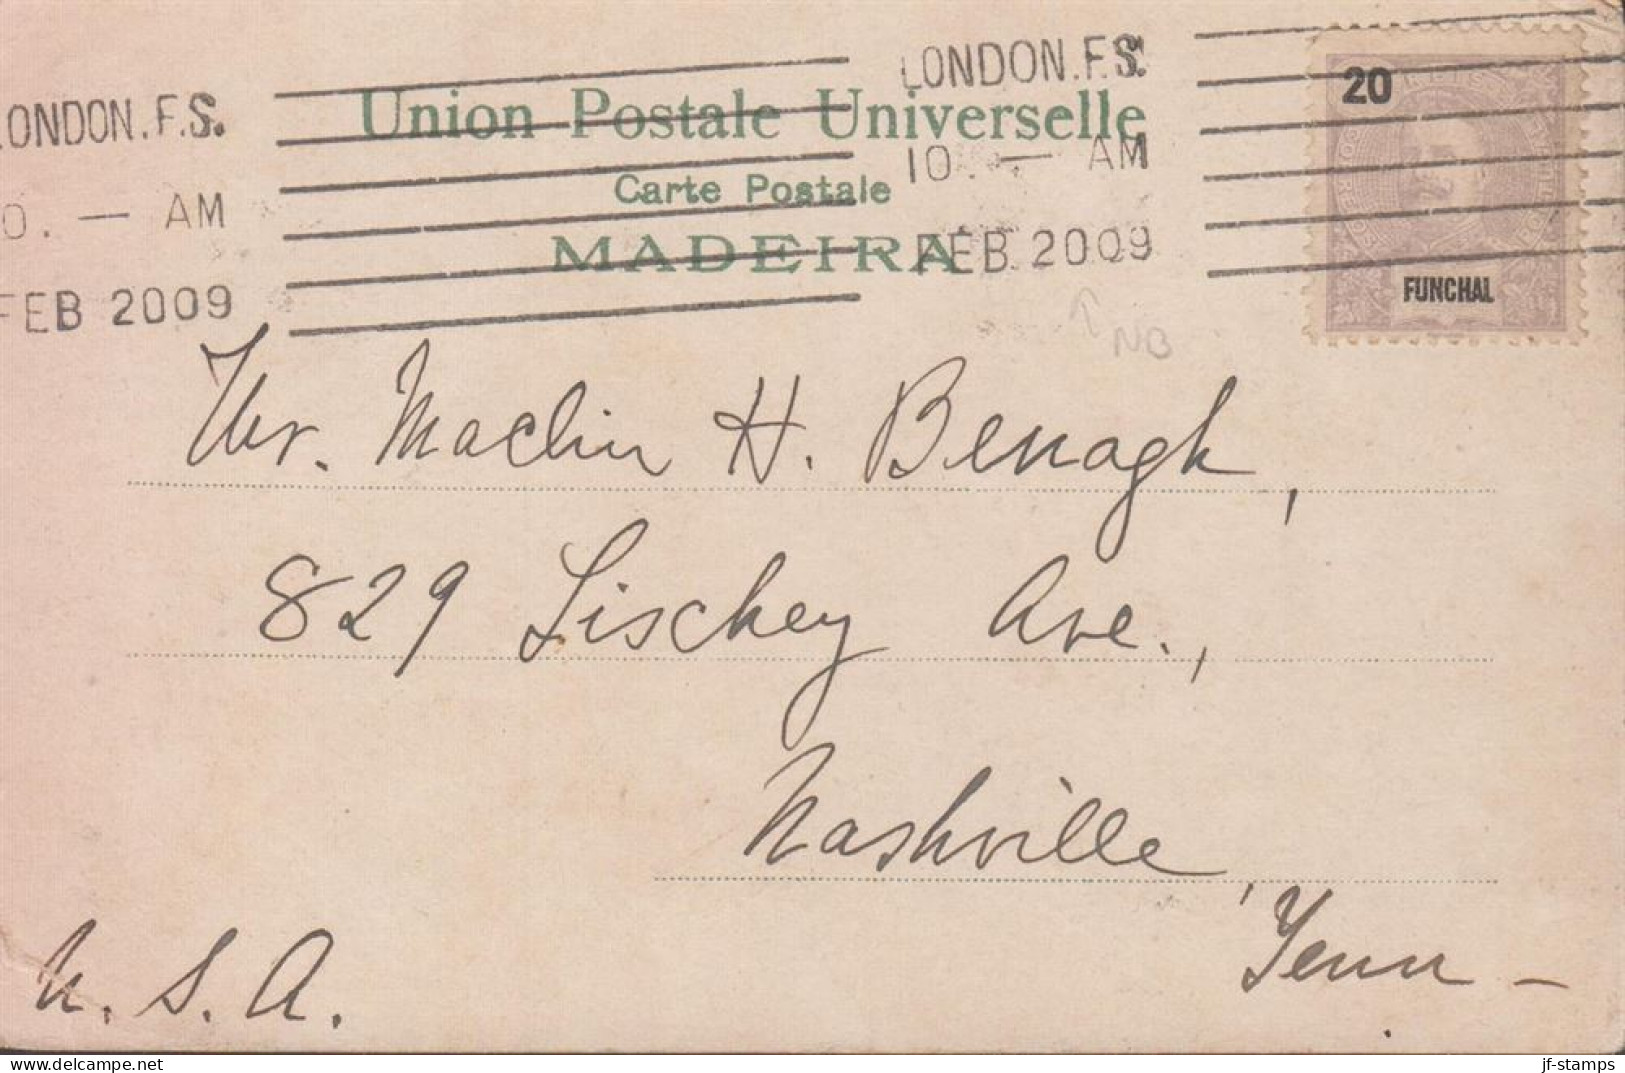 LONDON.F.S.
10. — AM
FEB 2009
LONDON.F.S.
0. — AM
FEB 2009
Union Postale Universelle
Carte Postale
MADEIRA
20
FUNCHAL
NB
Mr. Maclin H. Benagh,
829 Lischey Ave.,
Nashville,
Tenn –
U. S. A.
jf-stamps